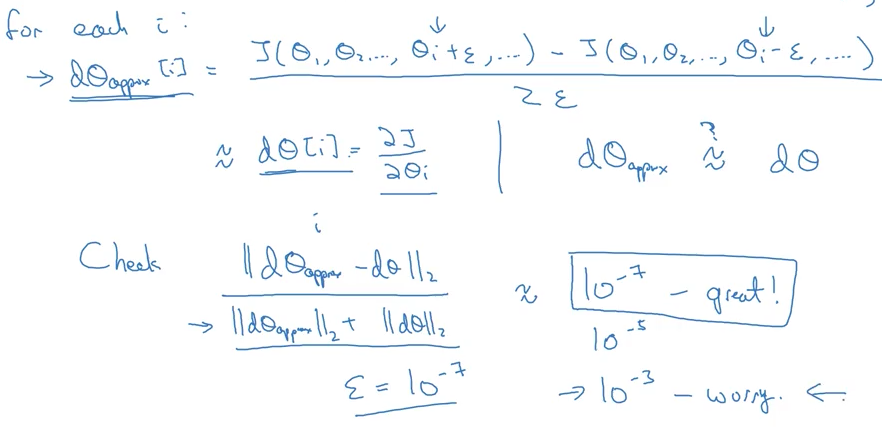 for each i:
→ dθapprox[i] = J(θ₁, θ₂, ..., θi + ε, ...) - J(θ₁, θ₂, ..., θi - ε, ....) / 2ε
≈ dθ[i] = ∂J/∂θi | dθapprox ≈? dθ
i
Check ||dθapprox - dθ||₂ / → ||dθapprox||₂ + ||dθ||₂ ≈ 10⁻⁷ - great!
10⁻⁵
ε = 10⁻⁷ → 10⁻³ - worry. ←